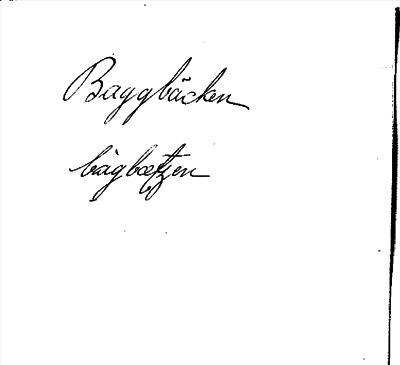 Baggbäcken
bàgbætʒen